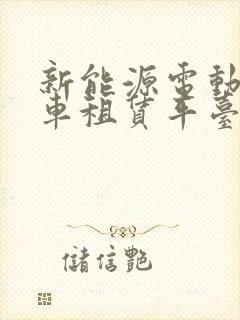 新能源電動
車租賃平臺
儲信艷